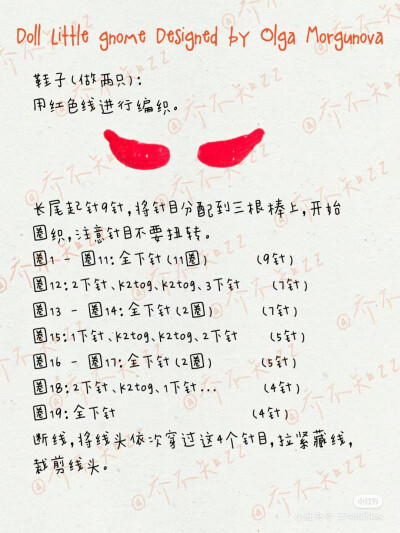 Doll Little gnome Designed by Olga Morgunova
鞋子(做两只):
用红色线进行编织。
长尾起针9针,将针目分配到三根棒上,开始
圈织,注意针目不要扭转。
圈1 - 圈11:全下针(11圈) (9针)
圈12:2下针、k2tog、k2tog、3下针 (7针)
圈13 - 圈14:全下针(2圈) (7针)
圈15:1下针、k2tog、k2tog、2下针 (5针)
圈16 - 圈17:全下针(2圈) (5针)
圈18:2下针、k2tog、1下针... (4针)
圈19:全下针 (4针)
断线,将线头依次穿过这4个针目,拉紧藏线,
裁剪线头。
小红书